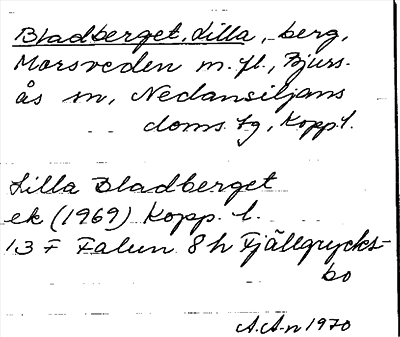 Bladberget, Lilla, berg,
Morsveden m. fl., Bjurs-
ås sn, Nedansiljans
doms. tg, Kopp. l.
Lilla Bladberget
ek (1969) Kopp. l.
13 F Falun 8 h Fjällgrycks-
bo
A.A-n 1970